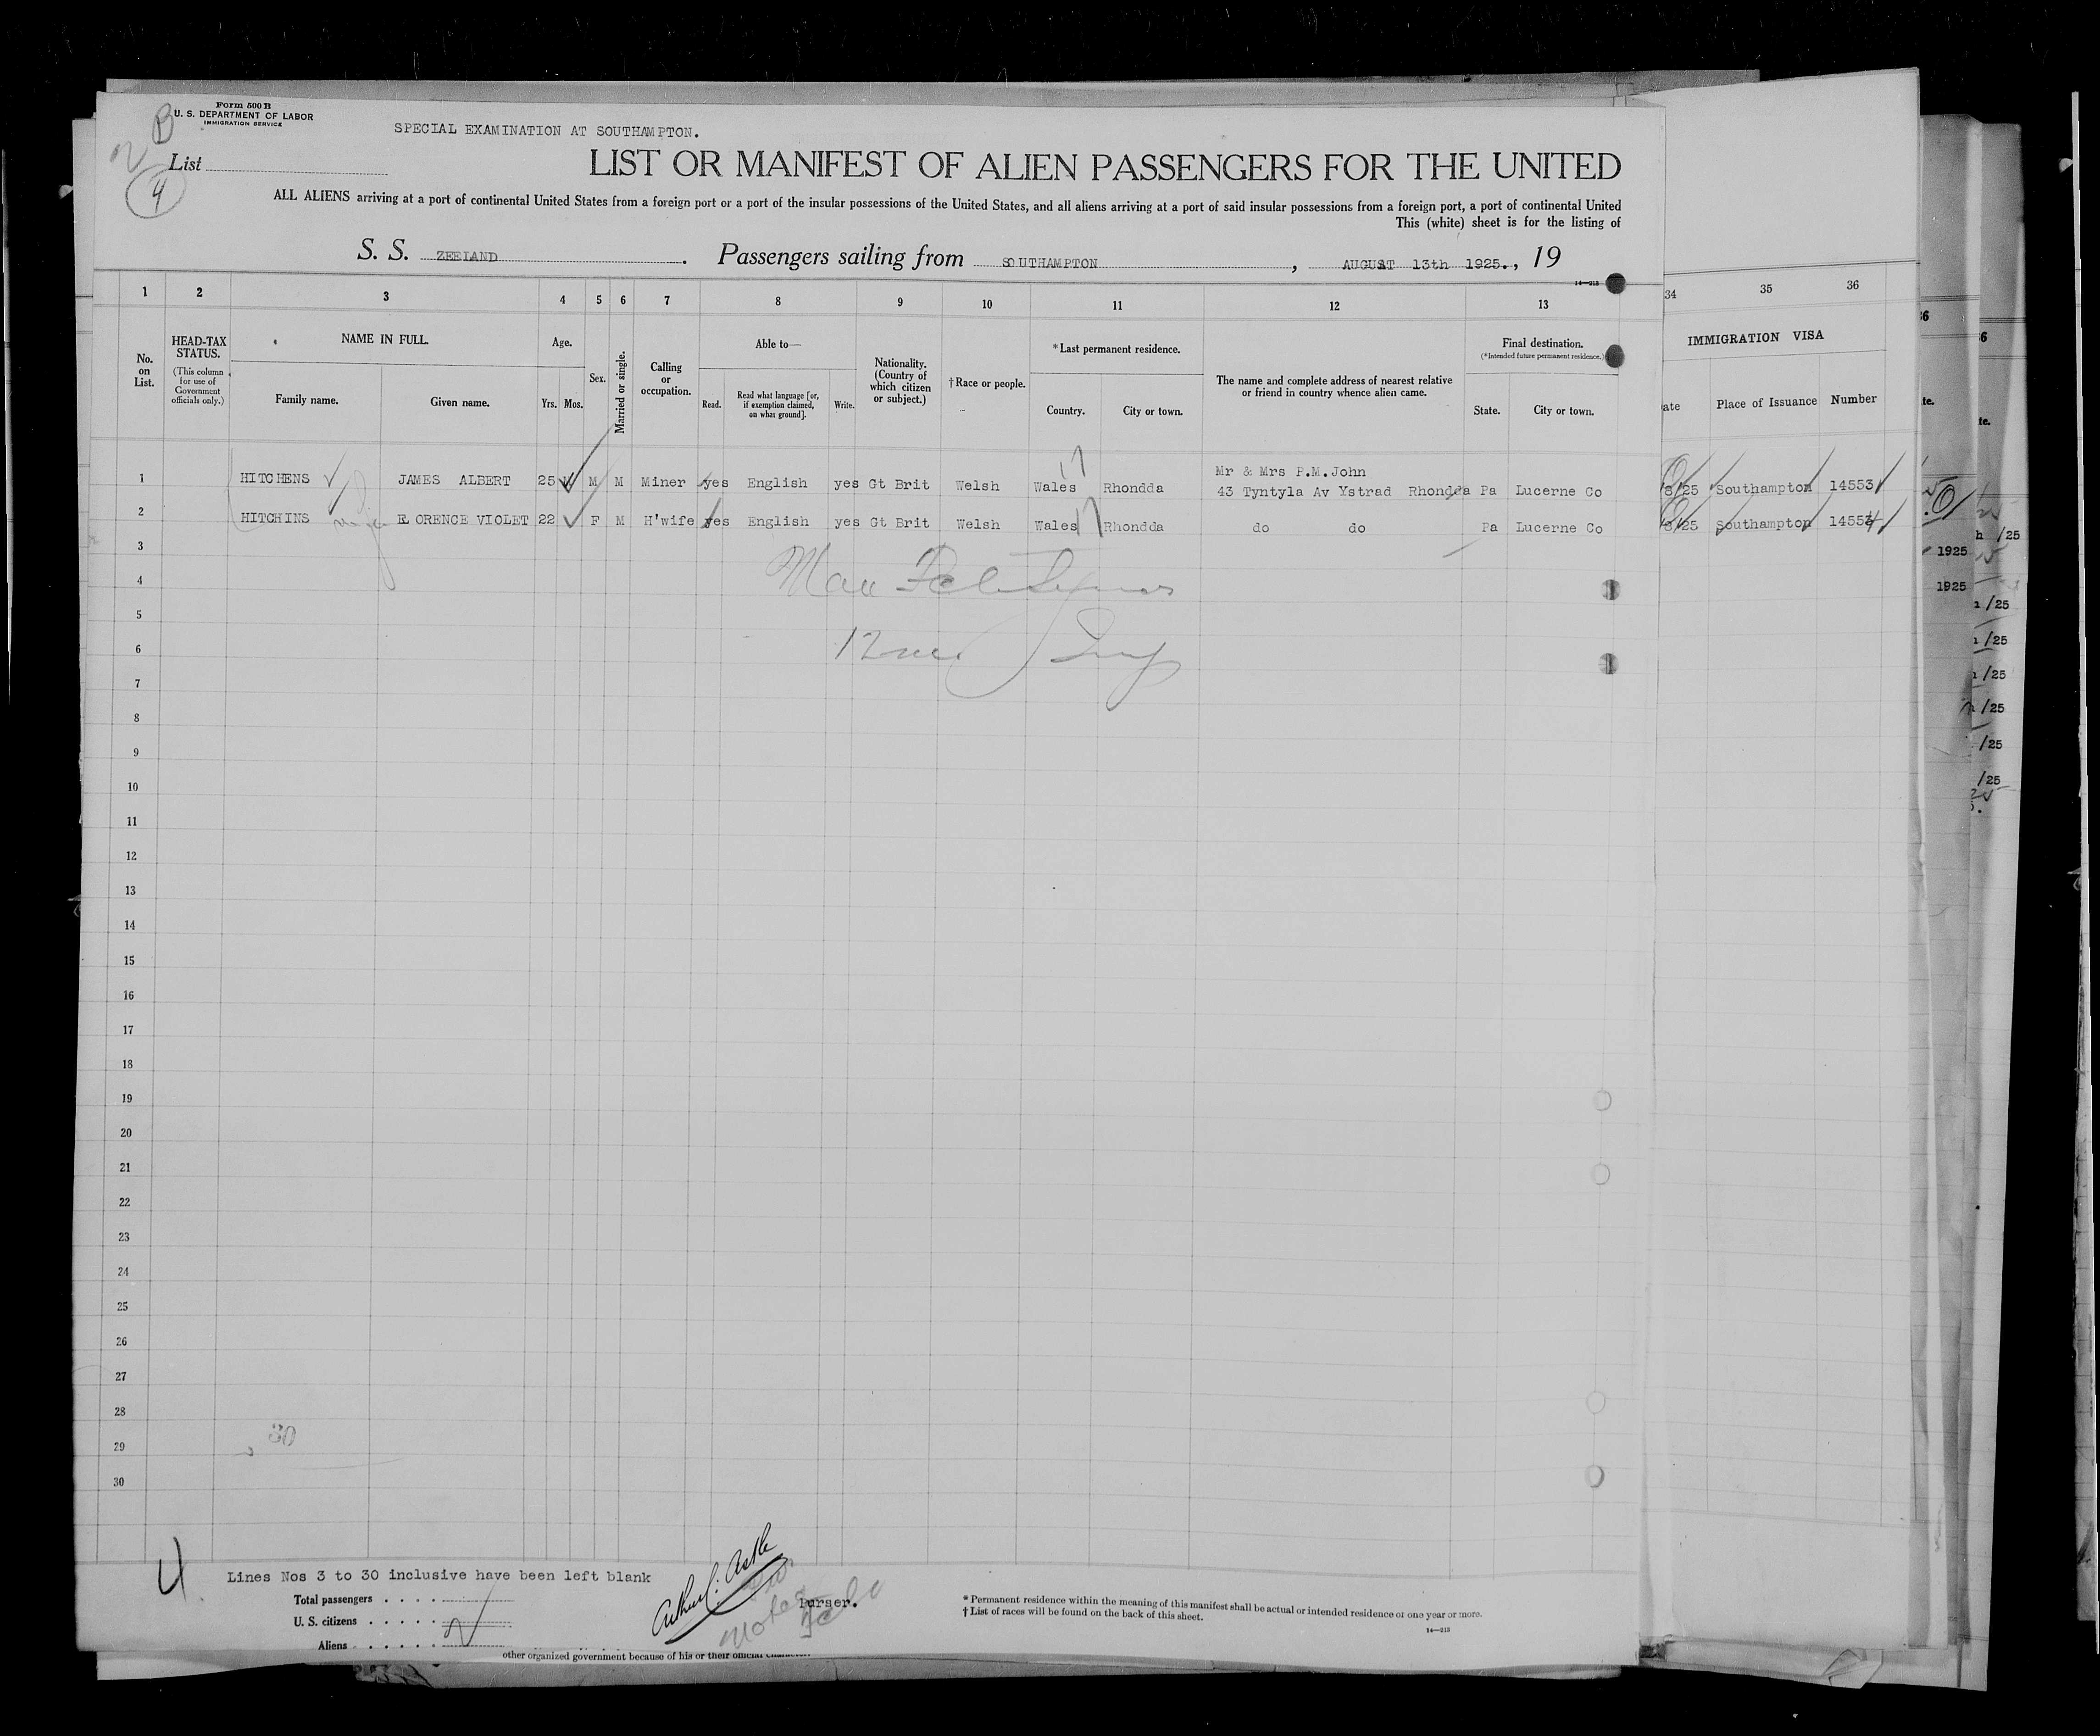 Form 500 B
U. S. DEPARTMENT OF LABOR
IMMIGRATION SERVICE
SPECIAL EXAMINATION AT SOUTHAMPTON.
B
List
4
LIST OR MANIFEST OF ALIEN PASSENGERS FOR THE UNITED
ALL ALIENS arriving at a port of continental United States from a foreign port or a port of the insular possessions of the United States, and all aliens arriving at a port of said insular possessions from a foreign port, a port of continental United
This (white) sheet is for the listing of
S. S. ZEELAND . Passengers sailing from SOUTHAMPTON , AUGUST 13th 1925. , 19
14—213
1 2 3 4 5 6 7 8 9 10 11 12 13 34 35 36
No. on List.
HEAD-TAX STATUS.
(This column for use of Government officials only.)
NAME IN FULL.
Family name. Given name.
Age.
Yrs. Mos.
Sex.
Married or single.
Calling or occupation.
Able to—
Read. Read what language [or, if exemption claimed, on what ground]. Write.
Nationality. (Country of which citizen or subject.)
† Race or people.
* Last permanent residence.
Country. City or town.
The name and complete address of nearest relative or friend in country whence alien came.
Final destination.
(*Intended future permanent residence.)
State. City or town.
IMMIGRATION VISA
ate Place of Issuance Number
Mr & Mrs P.M.John
1 HITCHENS JAMES ALBERT 25 M M Miner yes English yes Gt Brit Welsh Wales 17 Rhondda 43 Tyntyla Av Ystrad Rhondda Pa Lucerne Co 8/25 Southampton 14553
2 HITCHINS FLORENCE VIOLET 22 F M H'wife yes English yes Gt Brit Welsh Wales 17 Rhondda do do Pa Lucerne Co 8/25 Southampton 14554
3
4
5
6
7
8
9
10
11
12
13
14
15
16
17
18
19
20
21
22
23
24
25
26
27
28
29
30
30
36
6
te.
te.
1925
1925
h /25
/25
/25
/25
/25
/25
/25
4
Lines Nos 3 to 30 inclusive have been left blank
Total passengers . . . .
U. S. citizens . . . . .
Aliens . . . . . .
Arthur C. Astle
Purser.
* Permanent residence within the meaning of this manifest shall be actual or intended residence of one year or more.
† List of races will be found on the back of this sheet.
14—213
other organized government because of his or their official